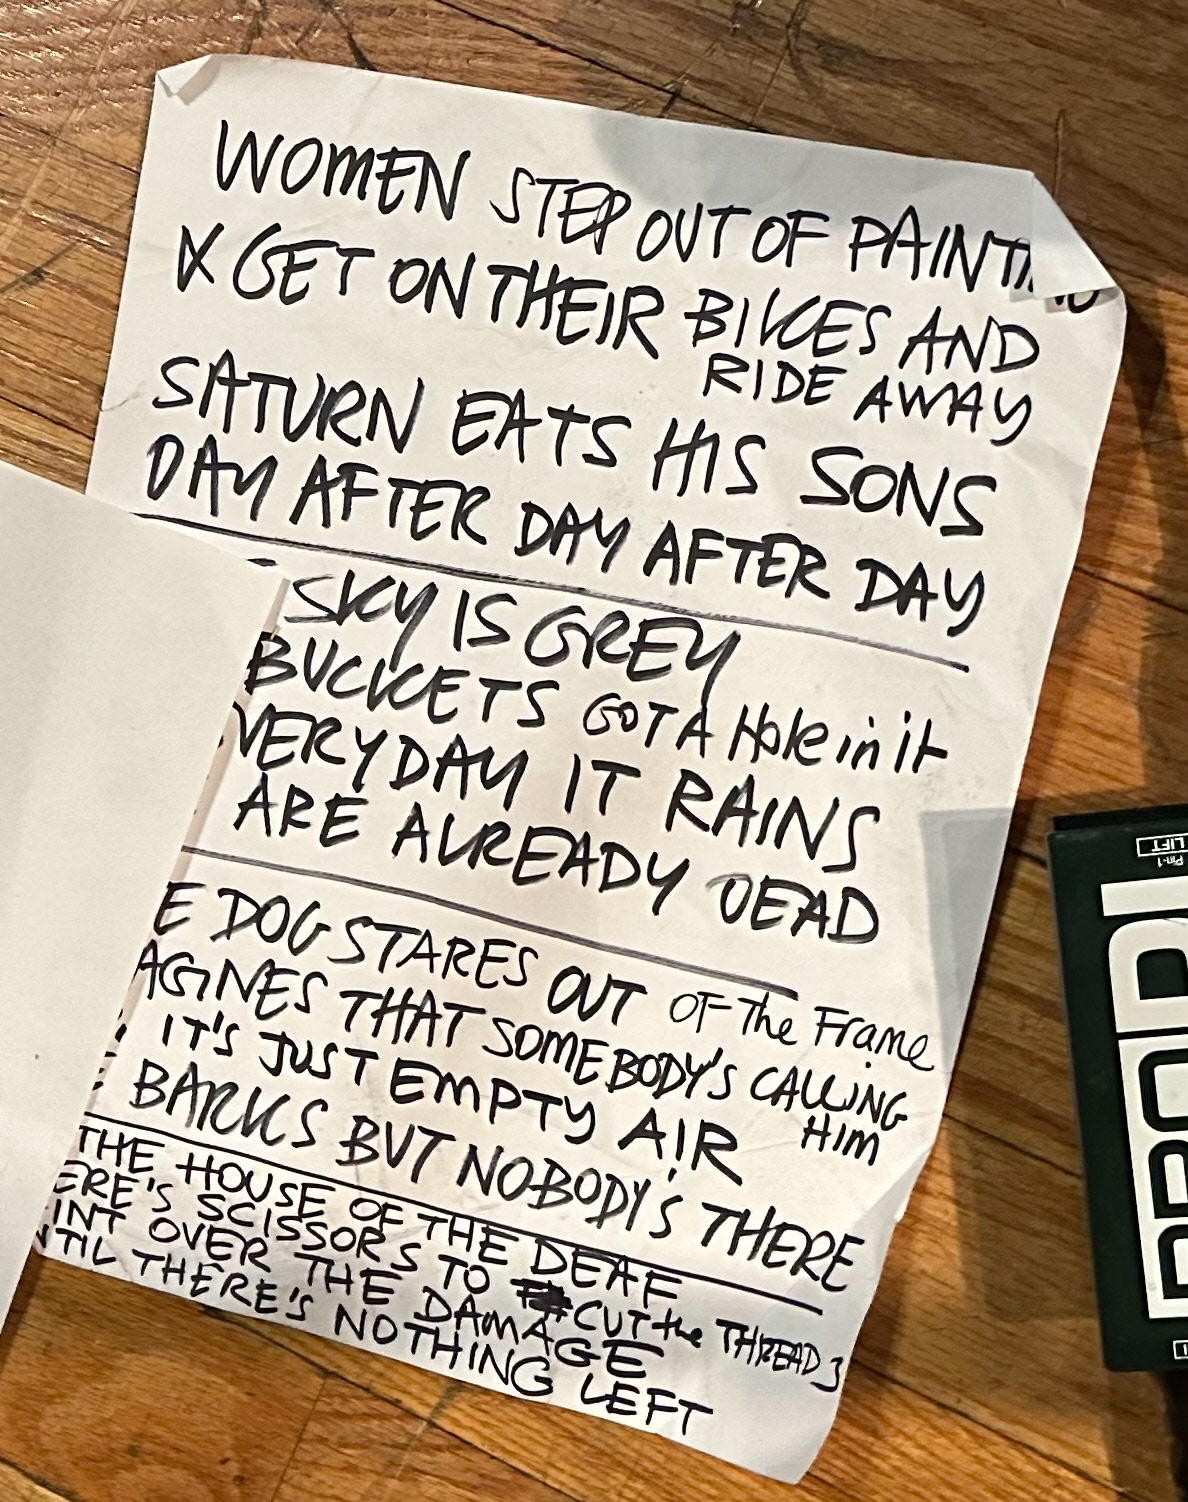 WOMEN STEP OUT OF PAINTING
& GET ON THEIR BIKES AND
RIDE AWAY
SATURN EATS HIS SONS
DAY AFTER DAY AFTER DAY
SKY IS GREY
BUCKETS GOT A Hole in it
VERYDAY IT RAINS
ARE ALREADY DEAD
E DOG STARES OUT OF The Frame
AGINES THAT SOMEBODY'S CALLING
HIM
IT'S JUST EMPTY AIR
BARKS BUT NOBODY'S THERE
THE HOUSE OF THE DEAF
ERE'S SCISSORS TO CUT the THREADS
INT OVER THE DAMAGE
TIL THERE'S NOTHING LEFT
LIFT
Pin-1